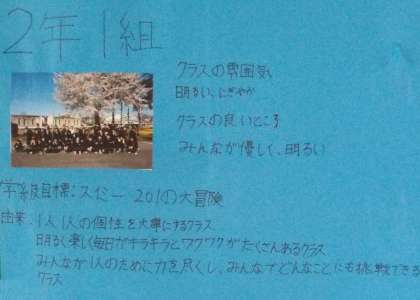 2年1組
クラスの雰囲気
明るい、にぎやか
クラスの良いところ
みんなが優しく、明るい
学級目標:スヒー201の大冒険
由来:1人1人の個性を大事にするクラス
明るく楽しく毎日がキラキラとワクワクがたくさんあるクラス
みんなが1人のために力を尽くし、みんなでどんなことにも挑戦できる
クラス